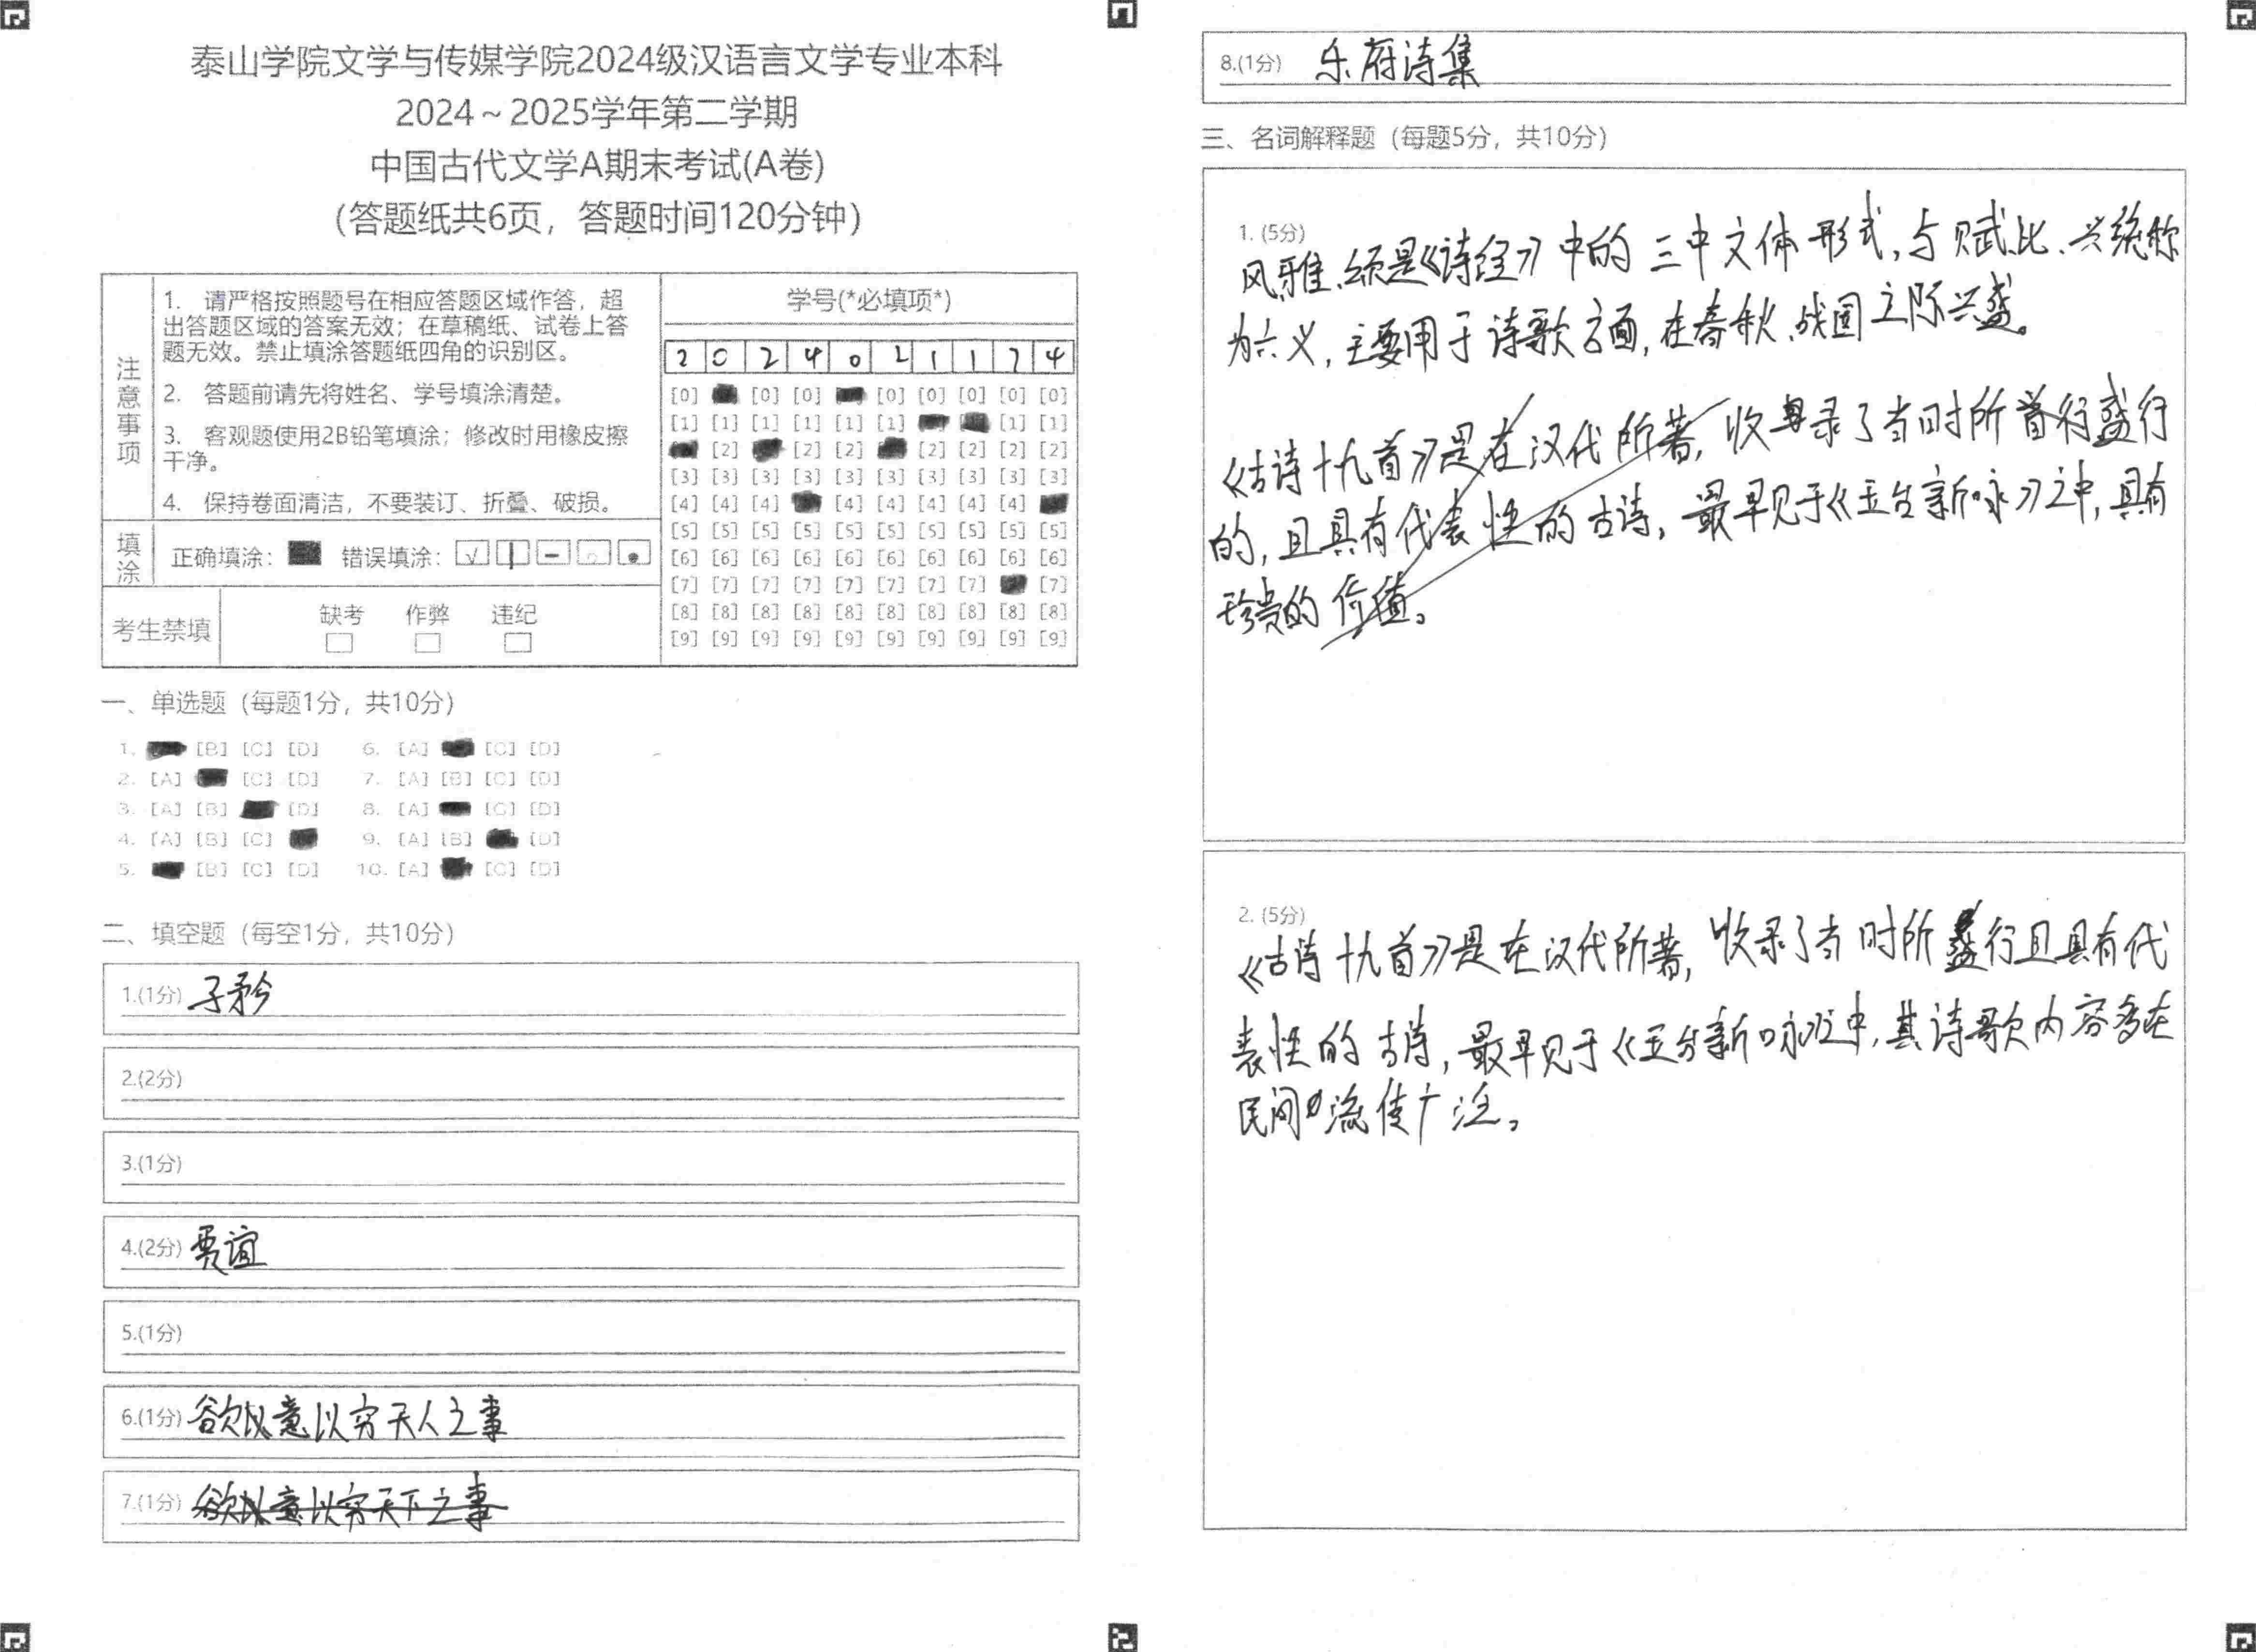 泰山学院文学与传媒学院2024级汉语言文学专业本科
2024～2025学年第二学期
中国古代文学A期末考试(A卷)
（答题纸共6页，答题时间120分钟）
注意事项
1. 请严格按照题号在相应答题区域作答，超
出答题区域的答案无效；在草稿纸、试卷上答
题无效。禁止填涂答题纸四角的识别区。
2. 答题前请先将姓名、学号填涂清楚。
3. 客观题使用2B铅笔填涂；修改时用橡皮擦
干净。
4. 保持卷面清洁，不要装订、折叠、破损。
填涂
正确填涂： 错误填涂：
考生禁填
缺考 作弊 违纪
学号(*必填项*)
2 0 2 4 0 2 1 1 7 4
[0] [0] [0] [0] [0] [0] [0] [0]
[1] [1] [1] [1] [1] [1] [1] [1]
[2] [2] [2] [2] [2] [2] [2]
[3] [3] [3] [3] [3] [3] [3] [3] [3] [3]
[4] [4] [4] [4] [4] [4] [4] [4]
[5] [5] [5] [5] [5] [5] [5] [5] [5] [5]
[6] [6] [6] [6] [6] [6] [6] [6] [6] [6]
[7] [7] [7] [7] [7] [7] [7] [7] [7]
[8] [8] [8] [8] [8] [8] [8] [8] [8] [8]
[9] [9] [9] [9] [9] [9] [9] [9] [9] [9]
一、单选题（每题1分，共10分）
1. [B] [C] [D] 6. [A] [C] [D]
2. [A] [C] [D] 7. [A] [B] [C] [D]
3. [A] [B] [D] 8. [A] [C] [D]
4. [A] [B] [C] 9. [A] [B] [D]
5. [B] [C] [D] 10. [A] [C] [D]
二、填空题（每空1分，共10分）
1.(1分) 子矜
2.(2分)
3.(1分)
4.(2分) 贾谊
5.(1分)
6.(1分) 欲以意以穷天人之事
7.(1分) 欲以意以穷天下之事
8.(1分) 乐府诗集
三、名词解释题（每题5分，共10分）
1. (5分)
风、雅、颂是《诗经》中的三中文体形式，与赋、比、兴统称
为六义，主要用于诗歌方面，在春秋、战国之际兴盛。
《古诗十九首》是在汉代所著，收录了当时所盛行
的，且具有代表性的古诗，最早见于《玉台新咏》之中，具有
珍贵的价值。
2. (5分)
《古诗十九首》是在汉代所著，收录了当时所盛行且具有代
表性的古诗，最早见于《玉台新咏》中，其诗歌内容多在
民间流传广泛。